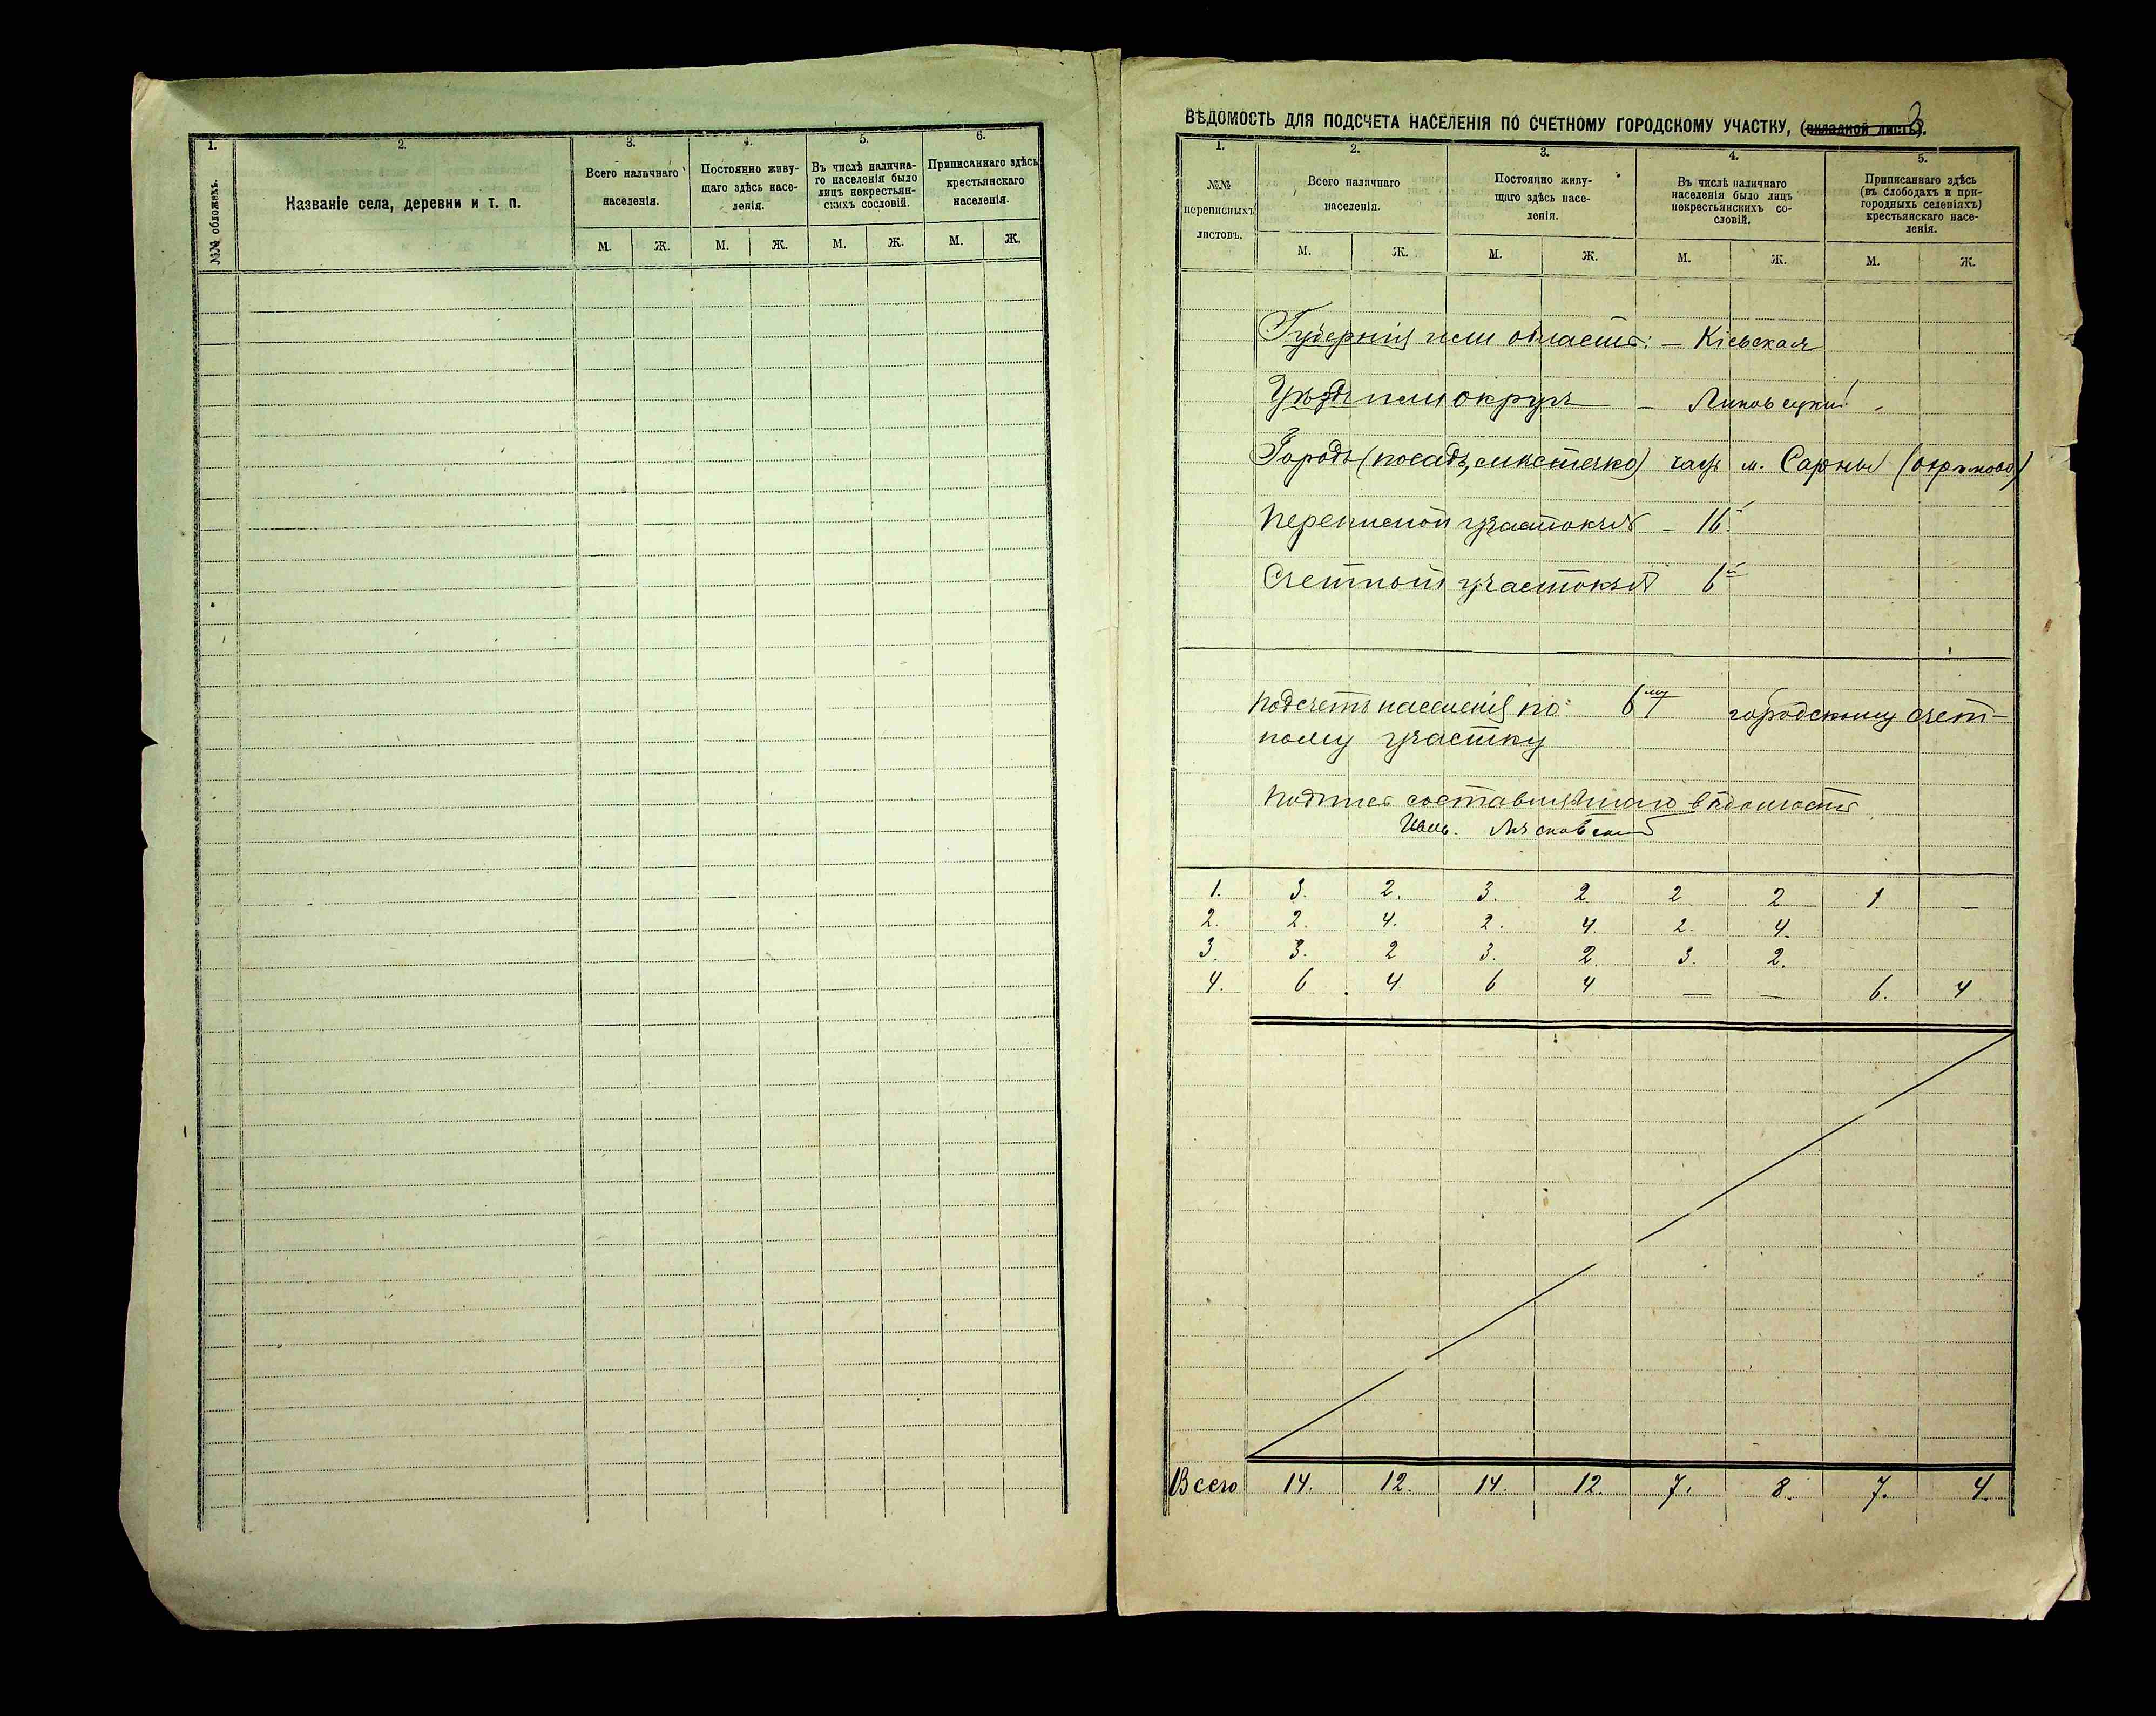 1. 2. 3. 4. 5. 6.
№№ обложекъ.
Названіе села, деревни и т. п.
Всего наличнаго
населенія.
Постоянно живу-
щаго здѣсь насе-
ленія.
Въ числѣ налична-
го населенія было
лицъ некрестьян-
скихъ сословій.
Приписаннаго здѣсь
крестьянскаго
населенія.
М. Ж. М. Ж. М. Ж. М. Ж.
ВѢДОМОСТЬ ДЛЯ ПОДСЧЕТА НАСЕЛЕНІЯ ПО СЧЕТНОМУ ГОРОДСКОМУ УЧАСТКУ, (ВКЛАДНОЙ ЛИСТЪ).
1. 2. 3. 4. 5.
№№
переписныхъ
листовъ.
Всего наличнаго
населенія.
Постоянно живу-
щаго здѣсь насе-
ленія.
Въ числѣ наличнаго
населенія было лицъ
некрестьянскихъ со-
словій.
Приписаннаго здѣсь
(въ слободахъ и при-
городныхъ селеніяхъ)
крестьянскаго насе-
ленія.
М. Ж. М. Ж. М. Ж. М. Ж.
Губернія или область: – Кіевская
Уѣздъ или округъ – Липовецкій
Городъ (посадъ, мѣстечко) часть м. Сарны
Переписной участокъ № – 16.
Счетной участокъ № 6й
Подсчетъ населенія по 6му городскому счет-
ному участку
Подпись составлявшаго вѣдомость
1. 3. 2. 3. 2 2 2 1 –
2. 2. 4. 2. 4. 2. 4.
3. 3. 2 3. 2. 3. 2.
4. 6 4 6 4 – – 6. 4
Всего 14. 12. 14. 12. 7. 8. 7. 4.